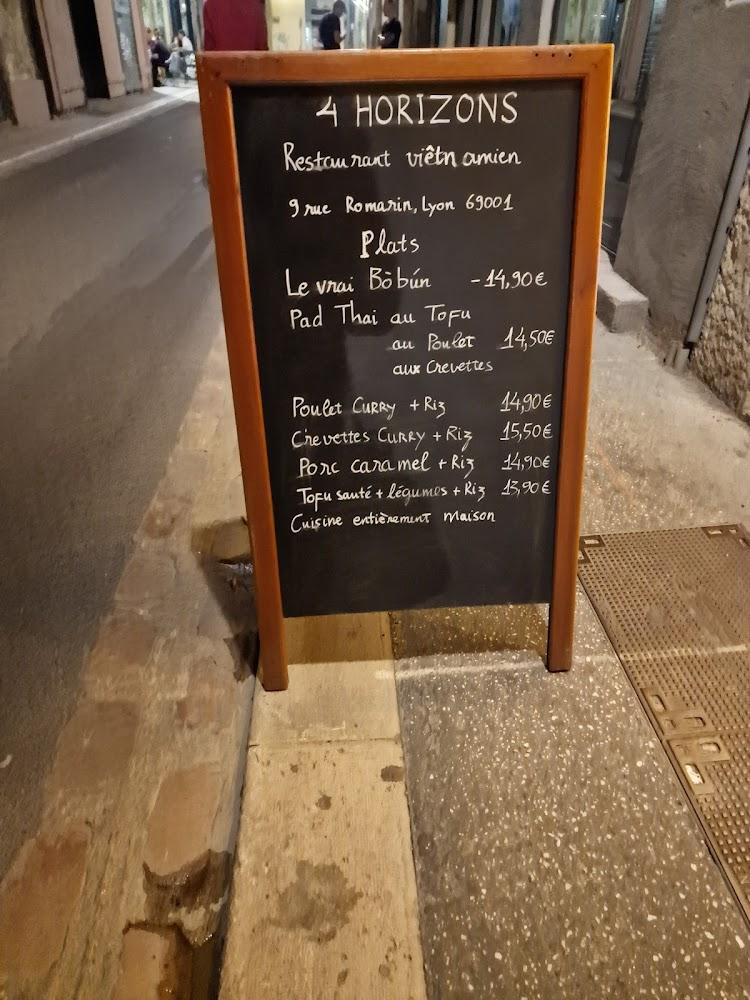 4 HORIZONS
Restaurant viêtnamien
9 rue Romarin, Lyon 69001
Plats
Le vrai Bò bún - 14,90€
Pad Thai au Tofu
au Poulet 14,50€
aux Crevettes
Poulet CURRY + Riz 14,90€
Crevettes CURRY + Riz 15,50€
Porc caramel + Riz 14,90€
Tofu sauté + légumes + Riz 13,90€
Cuisine entièrement Maison